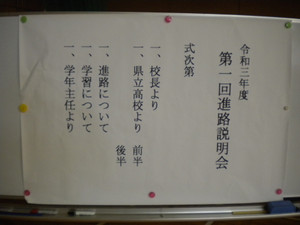 令和三年度
第一回進路説明会
式次第
一、校長より
一、県立高校より　前半
後半
一、進路について
一、学習について
一、学年主任より